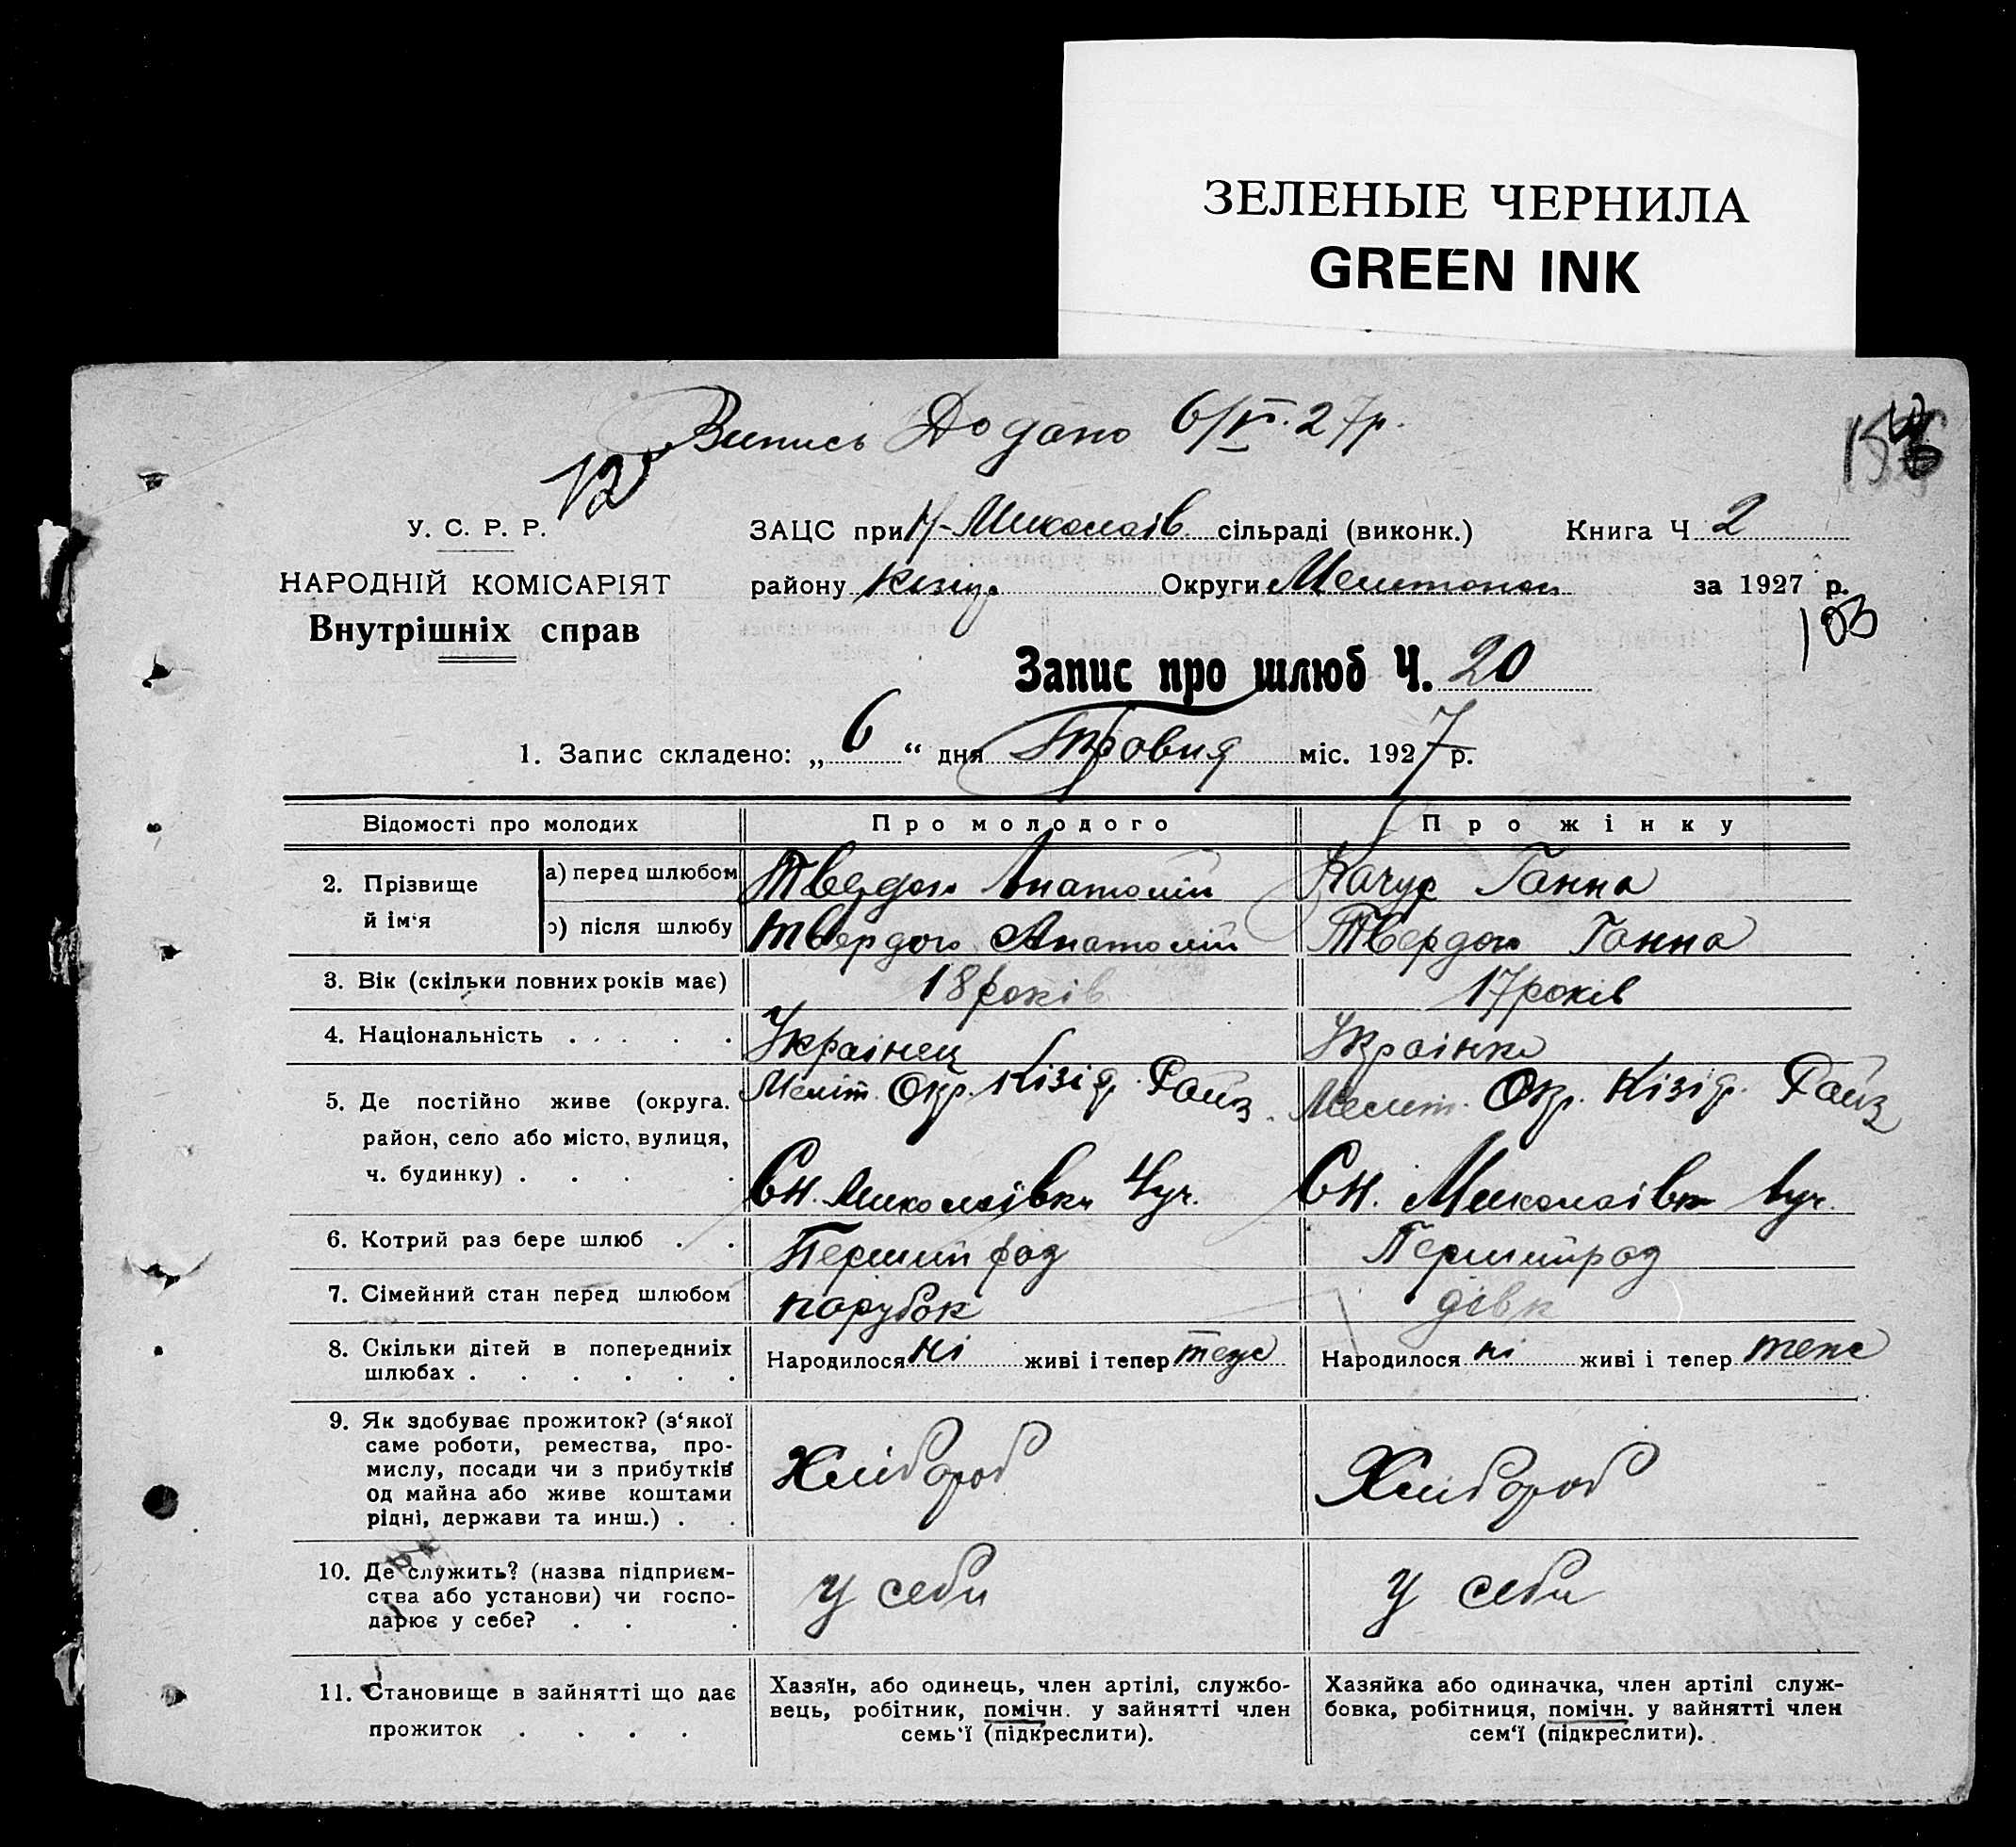 ЗЕЛЕНЫЕ ЧЕРНИЛА
GREEN INK
Випись Додано 6/V.27р.
12
У. С. Р. Р.
ЗАЦС при Н-Миколаїв. сільраді (виконк.) Книга Ч 2
НАРОДНІЙ КОМІСАРІЯТ
району Округи Мелитопол за 1927 р.
Внутрішніх справ
103
Запис про шлюб Ч. 20
1. Запис складено: „ 6 “ дня Травня міс. 1927 р.
Відомості про молодих Про молодого Про жінку
2. Прізвище й ім‘я
а) перед шлюбом Твердох Анатолій Качур Ганна
після шлюбу Твердох Анатолій Твердох Ганна
3. Вік (скільки повних років має) 18 років 17 років
4. Національність . . . . . Українец Українка
5. Де постійно живе (округа. район, село або місто, вулиця, ч. будинку) . . . .
Меліт. Окр. Кізіяр. Району
Сн. Миколаївка 4 уч.
Мелит. Окр. Кізіяр. Району
Сн. Миколаівка 1 уч.
6. Котрий раз бере шлюб . . Перший раз Перший раз
7. Сімейний стан перед шлюбом парубок дівка
8. Скільки дітей в попередниіх шлюбах . . . . . .
Народилося ні живі і тепер
Народилося ні живі і тепер
9. Як здобуває прожиток? (з‘якої
саме роботи, ремества, про-
мислу, посади чи з прибутків
од майна або живе коштами
рідні, держави та инш.) . .
Хлібороб Хлібороб
10. Де служить? (назва підприєм-
ства або установи) чи госпо-
дарює у себе? . . .
у себи у себи
11. Становище в зайнятті що дає
прожиток . . . .
Хазяїн, або одинець, член артілі, службо-
вець, робітник, помічн. у зайнятті член
семь‘ї (підкреслити).
Хазяйка або одиначка, член артілі служ-
бовка, робітниця, помічн. у зайнятті член
сем‘ї (підкреслити).